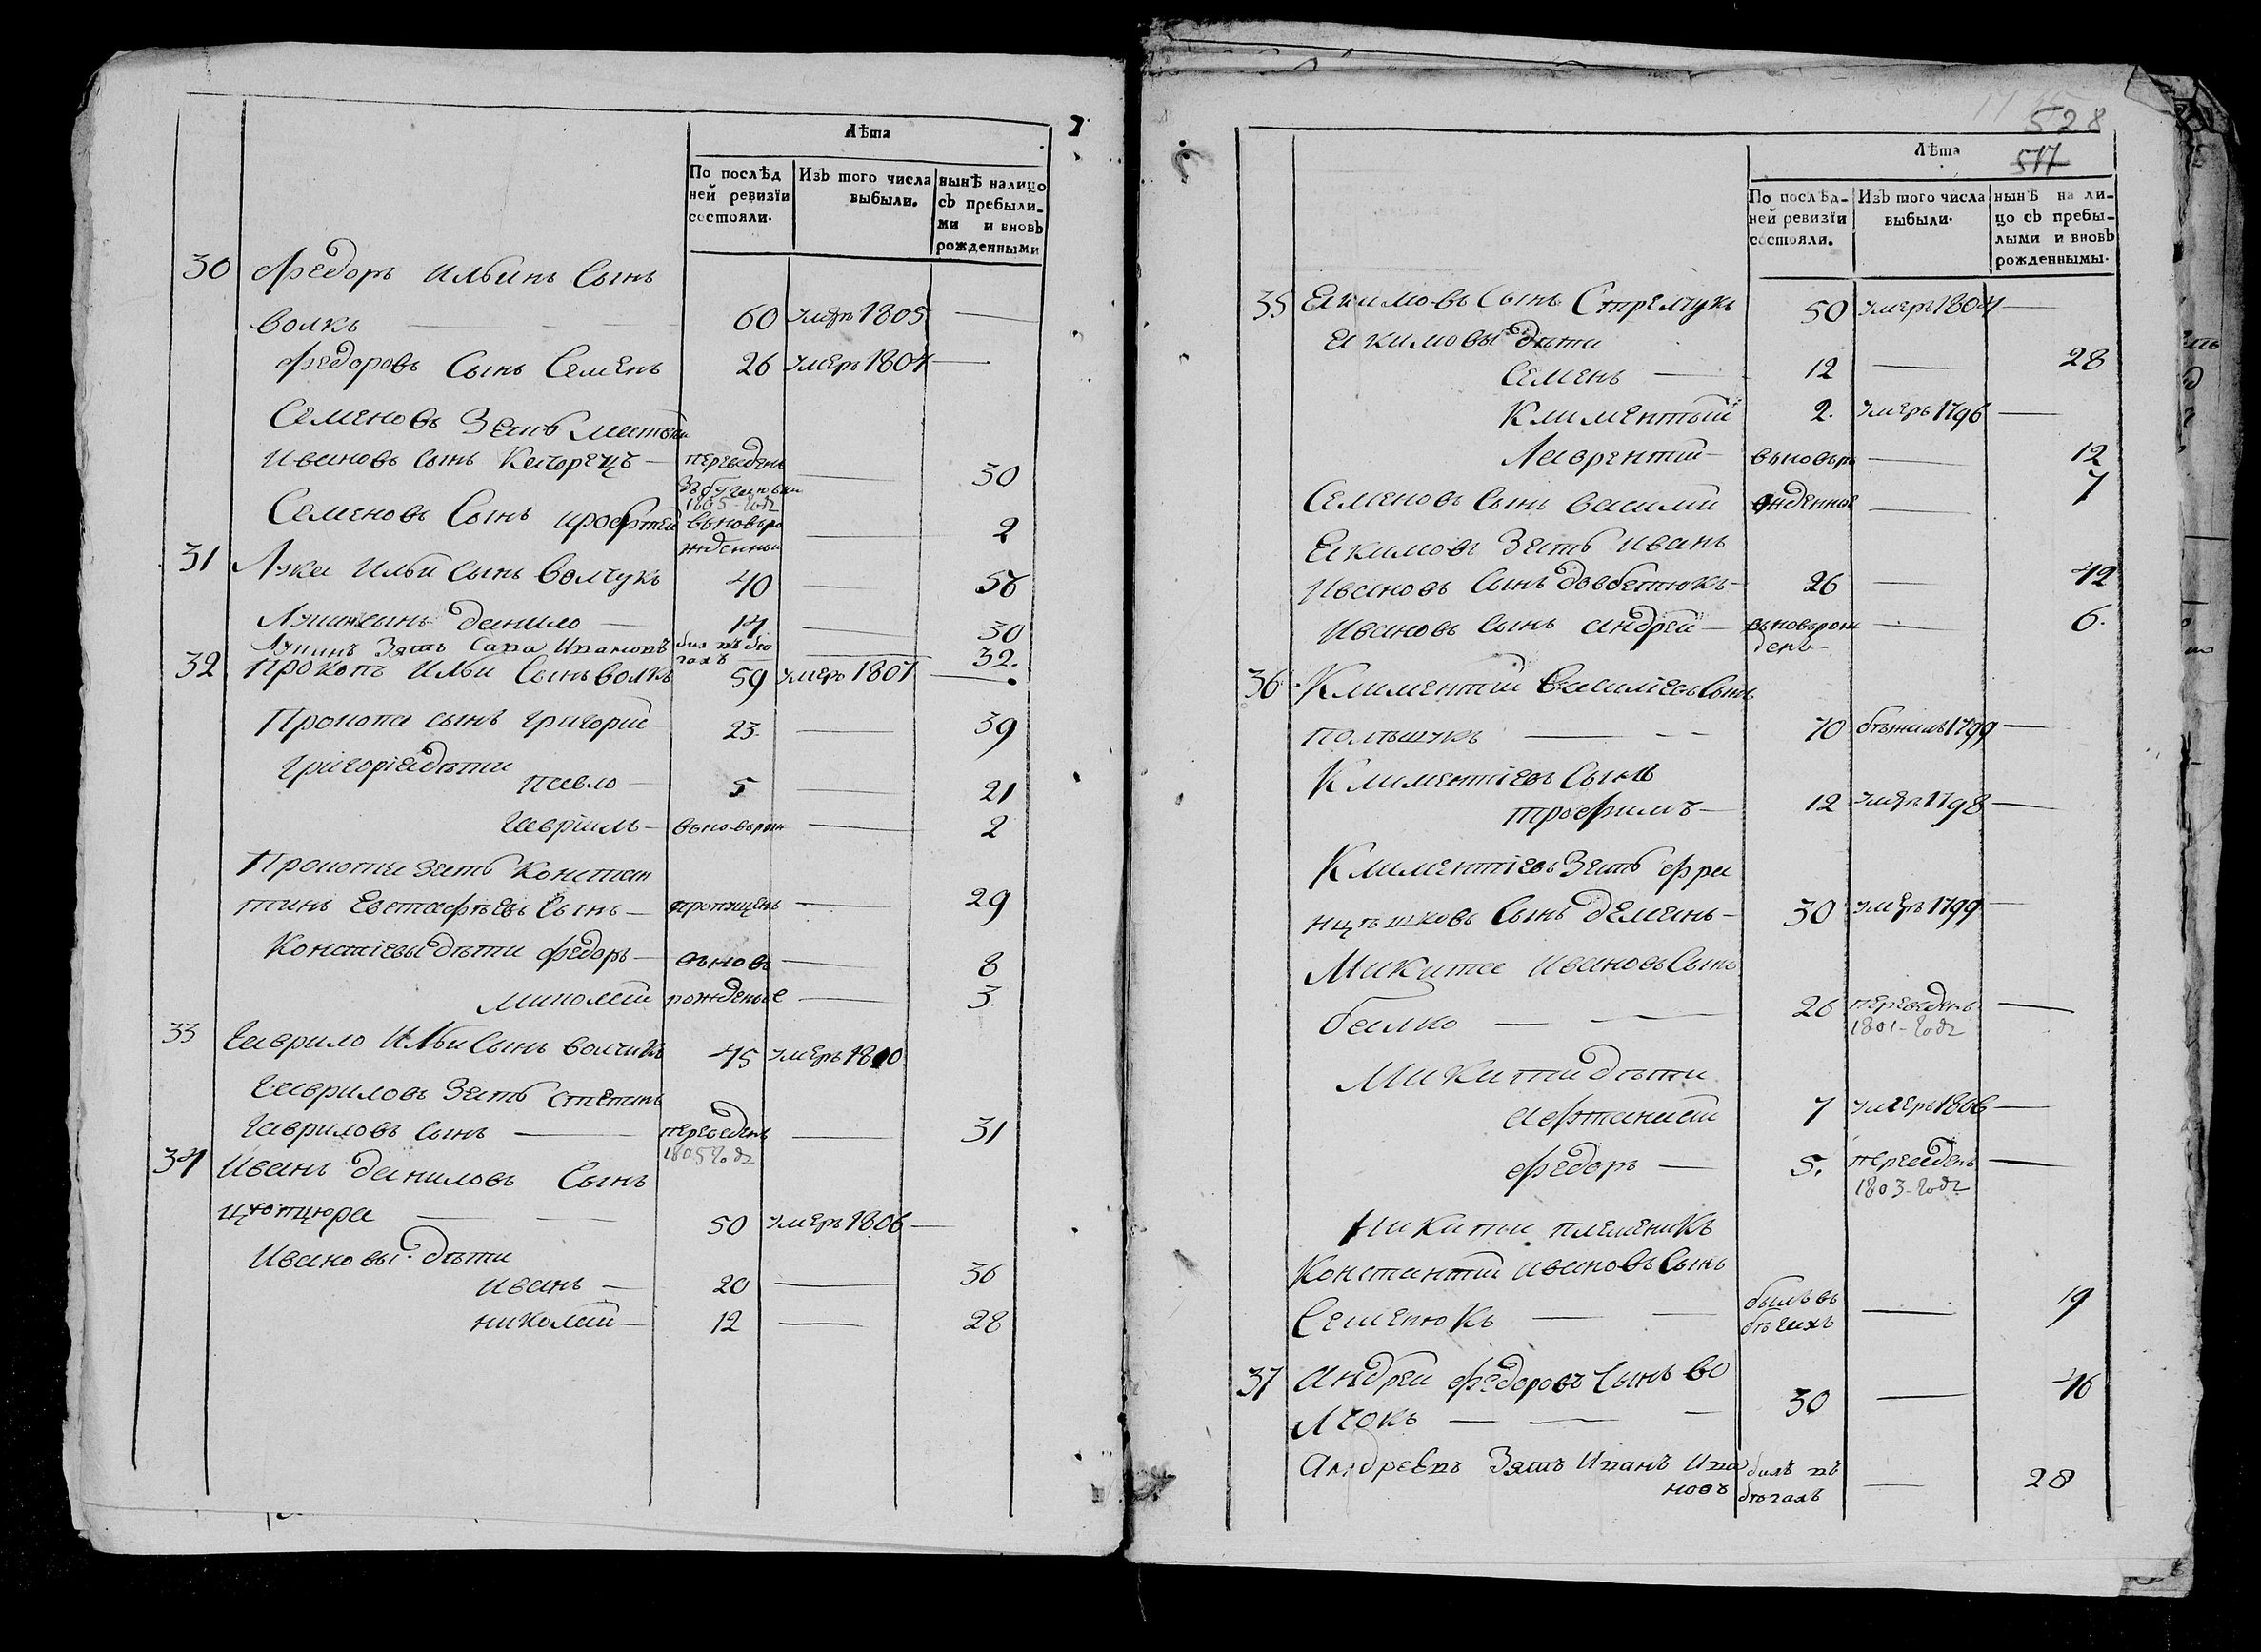 Лѣта
По послѣд
ней ревизїи
состояли.
Изъ того числа
выбыли.
нынѣ налицо
съ пребыли-
ми и вновь
рожденными
30 Федоръ ильинъ Сынъ
волкъ — — 60 умеръ 1805 —
Федоровъ Сынъ Семенъ 26 умеръ 1807 —
Семеновъ Зеть
ивановъ сынъ — переведенъ — 30
1805 годѣ
Семеновъ Сынъ вьновьро — 2
жденный
31 Лука Ильи Сынъ волчукъ 40 — 56
Лукинъ сынъ данило — 14 — 30
Лукинъ Зять Сава Ивановъ былъ въ бѣ
гахъ — 32.
32 прокопъ Ильи Сынъ волкъ 59 умеръ 1807 —
Прокопа сынъ григорий 23. — 39
григорїя дѣти
павло — 5 — 21
гаврїилъ — вьновьрож — 2
Прокопа зеть Констан
тинъ Евстафѣевъ Сынъ — пропущенъ — 29
Констїевы дѣти федоръ — вьновь — 8
миколай рожденые — 3.
33 гаврило Ильи Сынъ волчикъ 45 умеръ 1810
гавриловъ Зеть степанъ
гавриловъ сынъ — переведенъ — 31
1805 годѣ
34 иванъ даниловъ Сынъ
цюпцюра — — 50 умеръ 1806 —
Ивановы дѣти
иванъ — 20 — 36
николай — 12 — 28
528
517
Лѣта
По послѣд-
ней ревизїи
состояли.
Изъ того числа
выбыли.
нынѣ на ли-
цо съ пребы-
лыми и вновь
рожденнымы.
35 Екимовъ Сынъ Стрелчукъ 50 умеръ 1804 —
екимовы дѣти
Семенъ — 12 — 28
Климентый 2. умеръ 1796 —
Лаврентий вьновьро — 12
Семеновъ Сынъ василий жденные — 7
Екимовъ Зеть иванъ
Ивановъ Сынъ довбетюкъ — 26 — 42
Ивановъ сынъ андрей — вьновьрож — 6.
денъ —
36 Климентий Василїевъ Сынъ
полѣшукъ — — 70 бѣжилъ 1799 —
Климентїевъ Сынъ
трофимъ — 12 умеръ 1798 —
Климентїевъ Зеть фра
нцѣшковъ Сынъ деменъ — 30 умеръ 1799 —
Микита ивановъ Сынъ
балко — — 26 переведенъ —
1801 годѣ
Микити дѣти
афтанасий 7 умеръ 1806 —
федоръ — 5. переведенъ —
1803 годѣ
Никити племеникъ
Константий ивановъ Сынъ
Семенюкъ — — былъ въ
бѣгахъ — 19
37 андрей федоровъ Сынъ во
лчокъ — — — 30 — 46
Андреевъ Зять Иванъ Ива
новъ былъ въ
бѣгахъ — 28